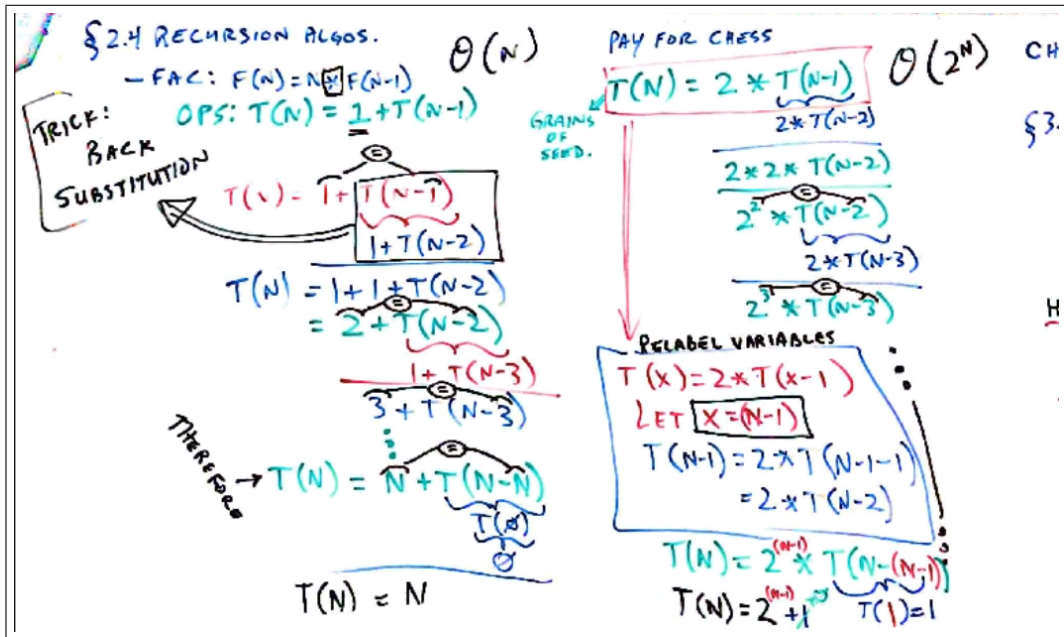 §2.4 RECURSION ALGOS.
Θ(N)
- FAC: F(N)=N*F(N-1)
OPS: T(N) = 1+T(N-1)
TRICK:
BACK
SUBSTITUTION
=
T(N) = 1+T(N-1)
1+T(N-2)
T(N) = 1+1+T(N-2)
=
= 2+T(N-2)
1+T(N-3)
=
3+T(N-3)
=
THEREFORE → T(N) = N+T(N-N)
T(0)
0
T(N) = N
PAY FOR CHESS
T(N) = 2 * T(N-1)
Θ(2^N)
GRAINS
OF
SEED.
2*T(N-2)
2*2*T(N-2)
=
2^2 * T(N-2)
2*T(N-3)
=
2^3 * T(N-3)
RELABEL VARIABLES
T(X)=2*T(X-1)
LET X=(N-1)
T(N-1)=2*T(N-1-1)
=2*T(N-2)
T(N)=2^(N-1) * T(N-(N-1))
T(1)=1
T(N)=2^(N-1)
CH
§3.
H